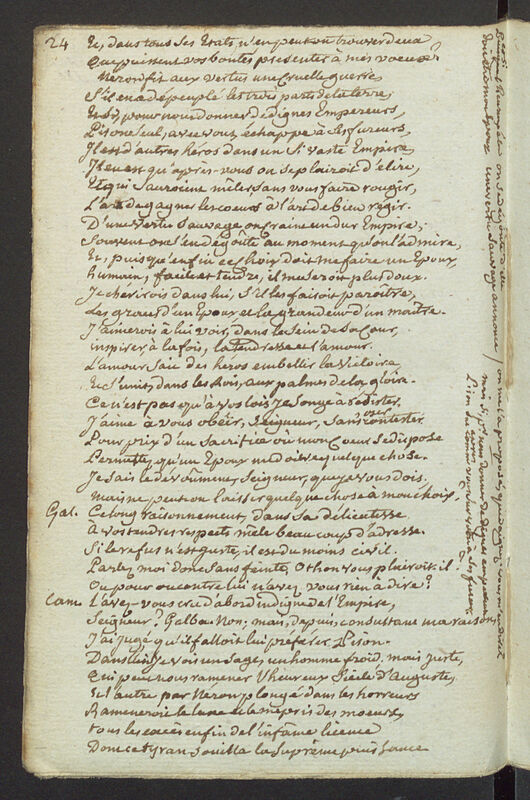 24
Et, dans tous ses Etats, n'en peut on trouver deux
Qui puissent vos bontés presenter à mes voeux?
Neron fit aux vertus une cruelle guerre
S'il en a dépeuplé les trois parts de la terre,
Et si, pour nous donner de dignes Empereurs,
Pison seul, avec vous, échappe à ses fureurs,
Il est d'autres héros dans un si vaste Empire
Il en est qu'après vous on se plairoit d'élire,
Et qui sauroient mêler, sans vous faire rougir,
L'art de gagner les coeurs à l'art de bien régir.
D'une vertu sauvage on craint un dur Empire,
Souvent on s'en dégoûte au moment qu'on l'admire,
Et, puisqu'enfin ce choix doit me faire un Epoux,
Humain, facile et tendre, il me seroit plus doux.
Je cherirois dans lui, s'il les faisoit paroître,
les graces d'un Epoux et la grandeur d'un maître.
J'aimerois à lui voir, dans le sein de sa Cour,
inspirer à la fois, la tendresse et l'amour.
L'amour sait des heros embellir la Victoire
Et s'unit, dans les Rois, aux palmes de la gloire.
Ce n'est pas qu'à vos loix je songe à résister
J'aime à vous obéir, Seigneur, sans contester.
oser
Pour prix d'un sacrifice où mon Coeur se dispose
Permettez qu'un Epoux me doive quelque chose.
Je sais le dévoument, Seigneur, que je vous dois,
mais ne peut-on laisser quelque chose à mon choix.
Gal. Ce long raisonnement, dans sa délicatesse
À vos tendres respects mêle beaucoup d'adresse.
Si le refus n'est juste, il est du moins civil.
Parlez moi donc sans feinte, Othon vous plairoit-il?
Ou pour ou contre lui n'avez-vous rien à dire?
Cam. L'avez-vous cru d'abord indigne de l'Empire,
Seigneur? Galba Non; mais, depuis, consultant ma raison
J'ai jugé qu'il falloit lui préférer Pison.
Dans lui je vois un sage, un homme froid, mais juste,
Qui peut nous ramener l'heureux siècle d'Auguste,
Et l'autre par Neron plongé dans les horreurs
Rameneroit le luxe et le mépris des moeurs,
tous les excès enfin de l'infâme licence
Dont ce tyran souilla la suprême puissance
doit être mon Epoux
une vertu sauvage annonce
on se dégoûte d'elle
on me l'a proposé
mais si, pr nous donner de dignes empereurs
Pison seul avec vous
à ses fureurs